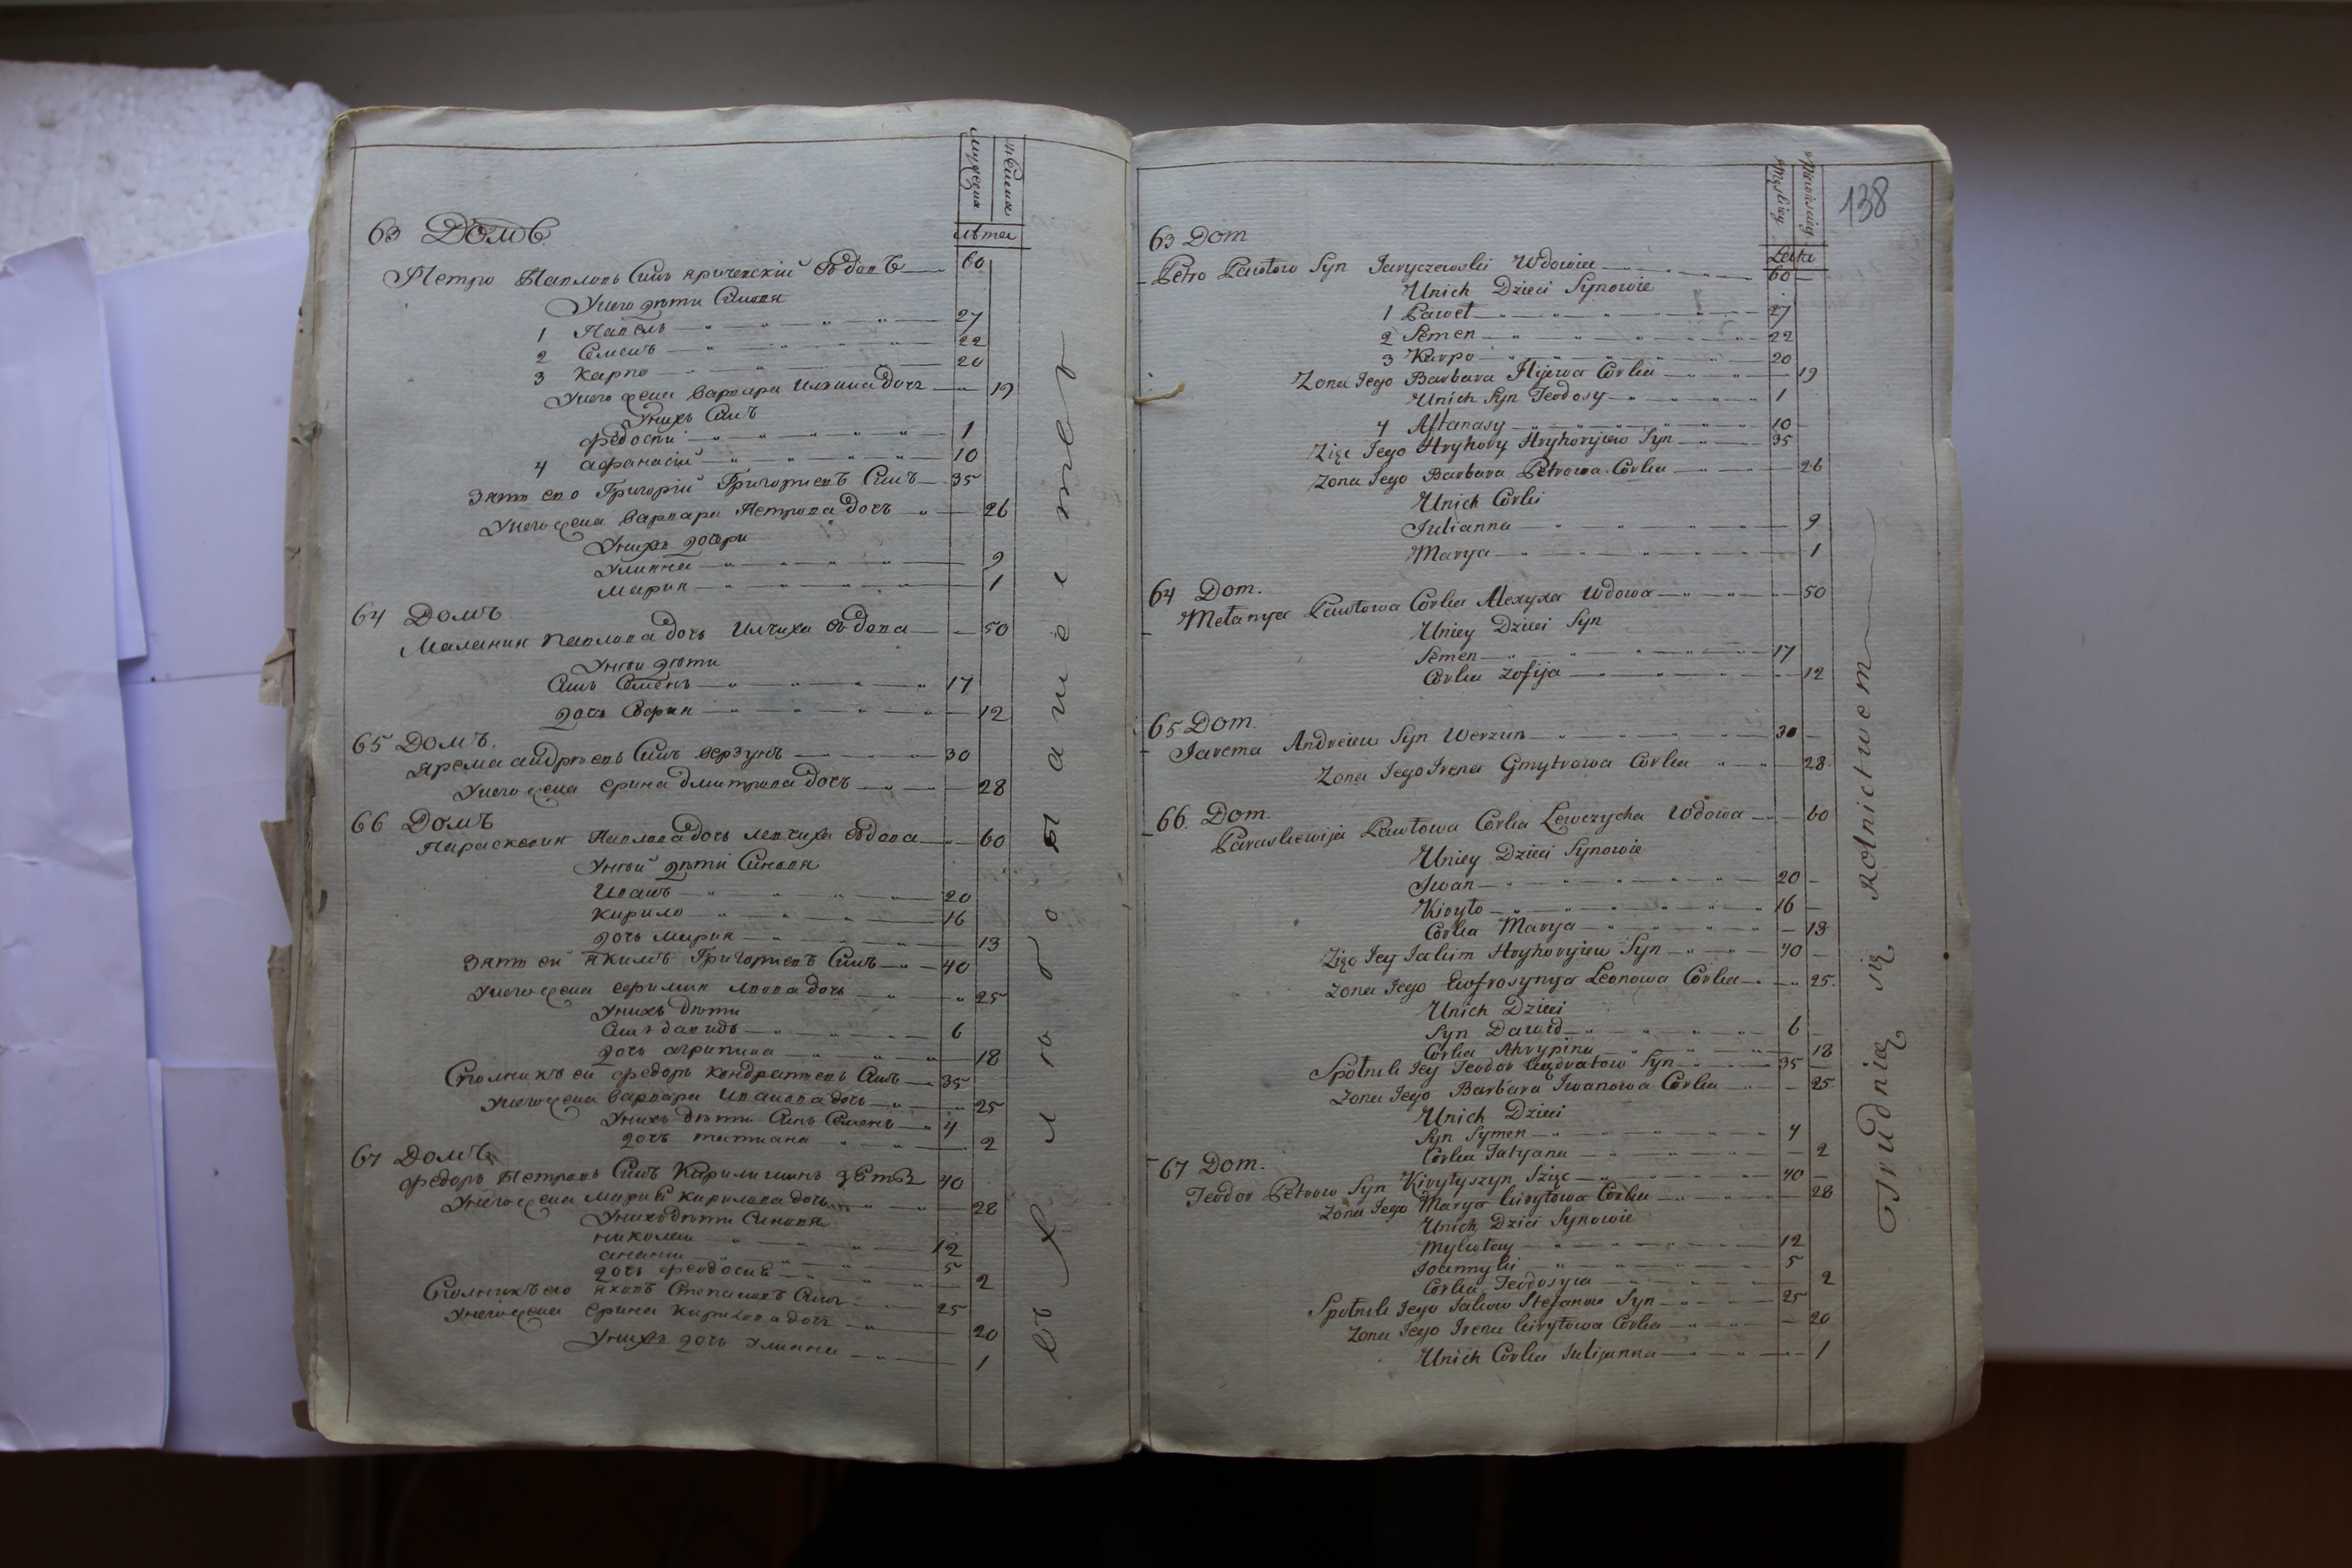 мужеска
женска
лѣта
63 Домъ
Петро Павловъ Синъ Яричевскій Вдовъ 60
Унего дѣти Синовя
1 Павелъ 27
2 Семенъ 22
3 Карпо 20
Унего жена Варвара Илїина дочъ 19
Унихъ Синъ
Федосій 1
4 Афанасій 10
Зять его Григорій Григориевъ Синъ 35
Унего жена Варвара Петрова дочъ 26
Унихъ дочери
Улияна 9
Мария 1
64 Домъ
Мелания Павлова дочъ Вдова 50
Унеи дѣти
Синъ Семенъ 17
дочъ София 12
65 Домъ
Ярема Андрѣевъ Синъ Верзунъ 30
Унего жена Ерина Дмитрова дочъ 28
66 Домъ
Параскевия Павлова дочъ Левчиха Вдова 60
Унеи дѣти Синовя
Иванъ 20
Кирило 16
дочъ Мария 13
Зять еи Якимъ Григориевъ Синъ 40
Унего жена дочъ 25
Унихъ дѣти
Синъ Давидъ 6
дочъ Агрипина 18
еи Федоръ Кондратиевъ Синъ 35
Унего жена Варвара Иванова дочъ 25
Унихъ дѣти Синъ Семенъ 4
дочъ Татиана 2
67 Домъ
Федоръ Петровъ Синъ Кирилишинъ Зять 40
Унего жена Мария Кирилова дочъ 28
Унихъ дѣти Синовя
Николаи 12
Анании 5
дочъ Феодосия 2
его Яковъ Степановъ Синъ 25
Унего жена Ерина Кирилова дочъ 20
Унихъ дочъ Улиана 1
въ хлѣбопашествѣ
138
Męskiey
Niewieściey
Lata
63 Dom
Petro Pawłow Syn Jaryczewski Wdowiec 60
Unich Dzieci Synowie
1 Paweł 27
2 Semen 22
3 Karpo 20
Zona Jego Barbara Ilijewa Corka 19
Unich Syn Teodosy 1
4 Affanasy 10
Zięc Jego Hryhory Hryhoryiew Syn 35
Zona Jego Barbara Petrowa Corka 26
Unich Corki
Julianna 9
Marya 1
64 Dom.
Mełanya Pawłowa Corka Wdowa 50
Uniey Dzieci Syn
Semen 17
Corka Zofija 12
65 Dom.
Jarema Andreiew Syn Werzun 30
Zona Jego Irena Gmytrowa Corka 28
66. Dom.
Paraskiewija Pawłowa Corka Lewczycha Wdowa 60
Uniey Dzieci Synowie
Iwan 20
Kiryło 16
Corka Marya 13
Zięc Jey Jakim Hryhoryiew Syn 40
Zona Jego Eufrosynya Leonowa Corka 25.
Unich Dzieci
Syn Dawid 6
Corka Ahrypina 18
Społnik Jey Teodor Syn 35
Zona Jego Barbara Iwanowa Corka 25
Unich Dzieci
Syn Symen 4
Corka Tatyana 2
67 Dom.
Teodor Petrow Syn Kiryłyszyn Szięc 40
Zona Jego Marya kiryłowa Corka 28
Unich Dzieci Synowie
Mykołay 12
5
Corka Teodosyia 2
Społnik Jego Jakow Stefanow Syn 25
Zona Jego Irena kiryłowa Corka 20
Unich Corka Julijanna 1
Trudnią się Rolnictwem